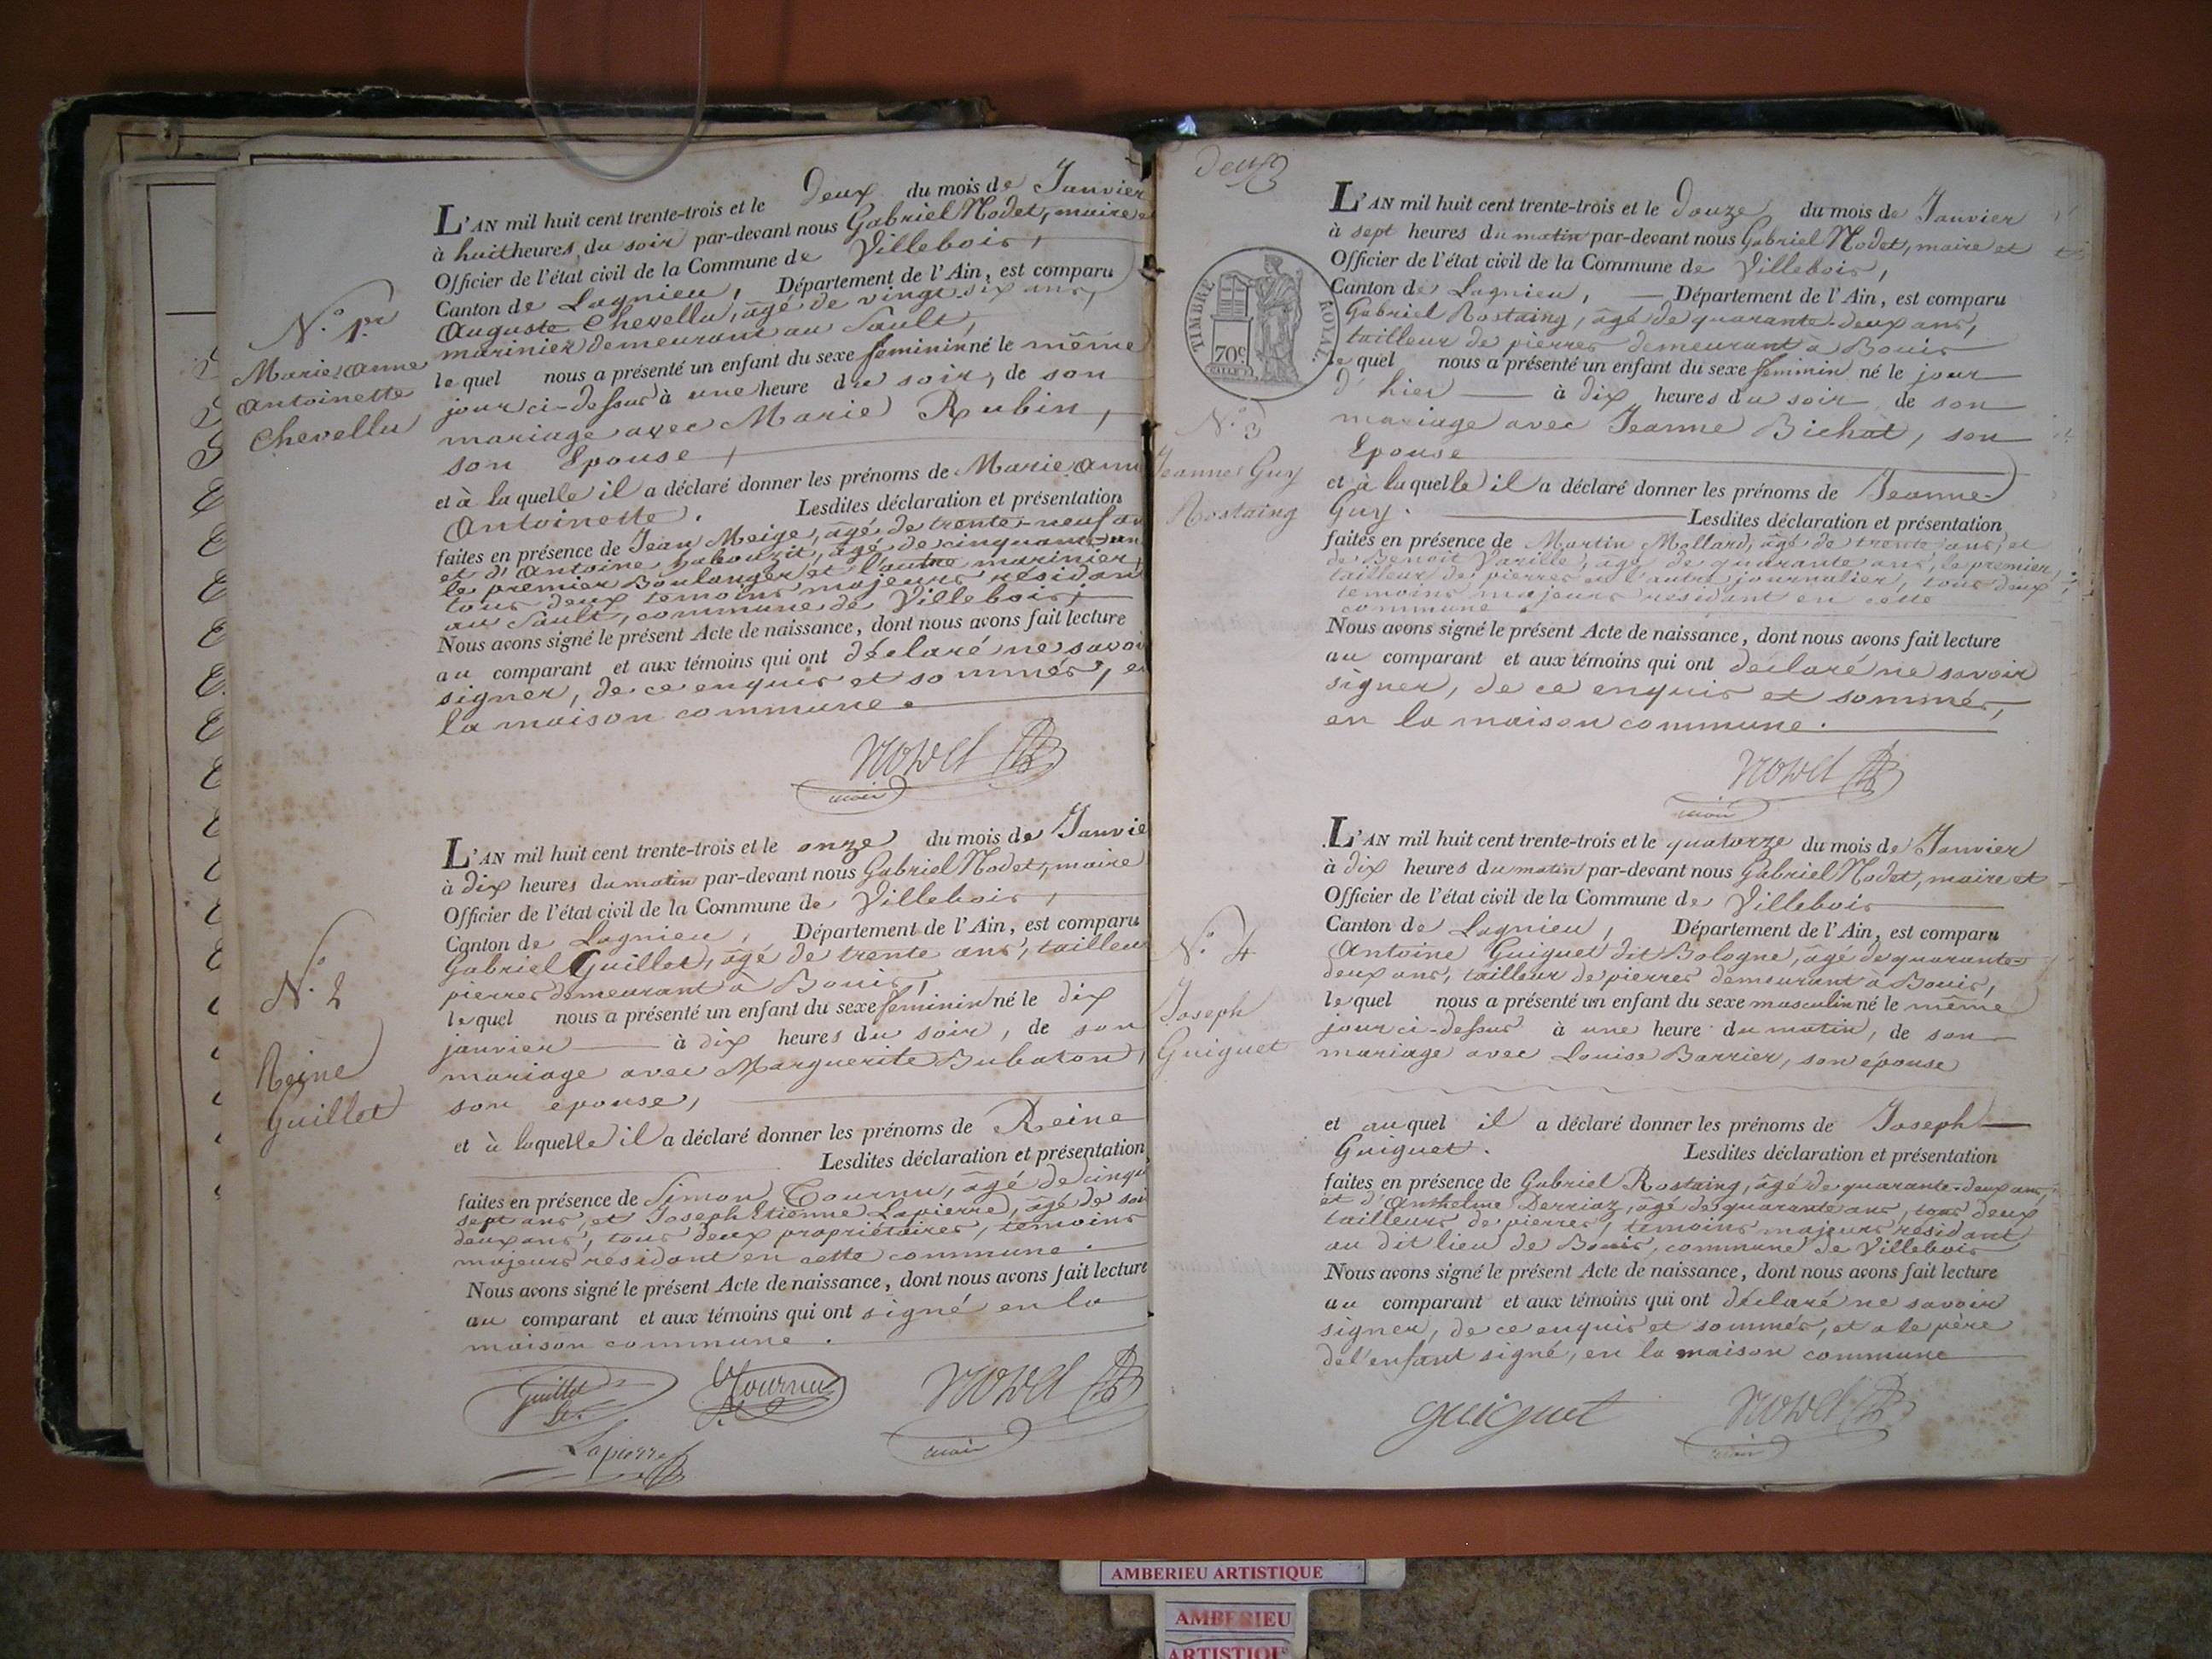 L'AN mil huit cent trente-trois et le Deux du mois de Janvier
à huit heures du soir par-devant nous Gabriel Nodet, maire et
Officier de l'état civil de la Commune de Villebois,
Canton de Lagnieu, Département de l'Ain, est comparu
Auguste Chevellu, âgé de vingt-six ans,
marinier demeurant au Sault,
lequel nous a présenté un enfant du sexe féminin né le même
jour ci-dessus à une heure du soir, de son
mariage avec Marie Rubin,
son Epouse
et à laquelle il a déclaré donner les prénoms de Marie Anne
Antoinette. Lesdites déclaration et présentation
faites en présence de Jean Meige, âgé de trente-neuf ans
et d'Antoine, âgé de cinquante-un
le premier Boulanger et l'autre marinier,
tous deux témoins majeurs résidant
au Sault, commune de Villebois,
Nous avons signé le présent Acte de naissance, dont nous avons fait lecture
au comparant et aux témoins qui ont déclaré ne savoir
signer, de ce enquis et sommés, en
la maison commune.
Nodet
maire
N.° 1er
Marie Anne
Antoinette
Chevellu
L'AN mil huit cent trente-trois et le onze du mois de Janvier
à dix heures du matin par-devant nous Gabriel Nodet, maire
Officier de l'état civil de la Commune de Villebois,
Canton de Lagnieu, Département de l'Ain, est comparu
Gabriel Guillet, âgé de trente ans, tailleur
pierres demeurant à Bouis,
lequel nous a présenté un enfant du sexe féminin né le dix
janvier à dix heures du soir, de son
mariage avec Marguerite Bubaton,
son épouse,
et à laquelle il a déclaré donner les prénoms de Reine
Lesdites déclaration et présentation
faites en présence de Simon Tournu, âgé de cinqu
sept ans, et Joseph Etienne Lapierre, âgé de soi
deux ans, tous deux propriétaires, témoins
majeurs résidant en cette commune.
Nous avons signé le présent Acte de naissance, dont nous avons fait lecture
au comparant et aux témoins qui ont signé en la
maison commune.
Guillet
Tournu
Nodet
maire
Lapierre
N.° 2
Reine
Guillet
deux
TIMBRE ROYAL
70c
L'AN mil huit cent trente-trois et le douze du mois de Janvier
à sept heures du matin par-devant nous Gabriel Nodet, maire et
Officier de l'état civil de la Commune de Villebois,
Canton de Lagnieu, Département de l'Ain, est comparu
Gabriel Rostaing, âgé de quarante-deux ans,
tailleur de pierres demeurant à Bouis
lequel nous a présenté un enfant du sexe féminin né le jour
d'hier à dix heures du soir de son
mariage avec Jeanne Bichat, son
Epouse
et à laquelle il a déclaré donner les prénoms de Jeanne-
Guy. Lesdites déclaration et présentation
faites en présence de Martin Mollard, âgé de trente ans, et
de Benoit Varille, âgé de quarante ans, le premier,
tailleur de pierres et l'autre journalier, tous deux
témoins majeurs résidant en cette
commune
Nous avons signé le présent Acte de naissance, dont nous avons fait lecture
au comparant et aux témoins qui ont déclaré ne savoir
signer, de ce enquis et sommés,
en la maison commune.
Nodet
maire
N.° 3
Jeanne Guy
Rostaing
L'AN mil huit cent trente-trois et le quatorze du mois de Janvier
à dix heures du matin par-devant nous Gabriel Nodet, maire et
Officier de l'état civil de la Commune de Villebois
Canton de Lagnieu, Département de l'Ain, est comparu
Antoine Guiguet dit Bologne, âgé de quarante-
deux ans, tailleur de pierres demeurant à Bouis,
lequel nous a présenté un enfant du sexe masculin né le même
jour ci-dessus à une heure du matin, de son
mariage avec Louise Barrier, son épouse
et auquel il a déclaré donner les prénoms de Joseph
Guiguet. Lesdites déclaration et présentation
faites en présence de Gabriel Rostaing, âgé de quarante-deux ans,
et d'Anthelme Derriaz, âgé de quarante ans, tous deux
tailleurs de pierres, témoins majeurs résidant
au dit lieu de Bouis, commune de Villebois
Nous avons signé le présent Acte de naissance, dont nous avons fait lecture
au comparant et aux témoins qui ont déclaré ne savoir
signer, de ce enquis et sommés, et a le père
de l'enfant signé, en la maison commune
guiguet
Nodet
maire
N.° 4
Joseph
Guiguet
AMBERIEU ARTISTIQUE
AMBERIEU
ARTISTIQUE